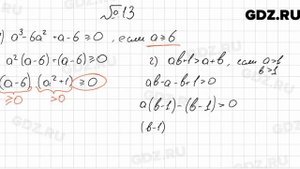 №13
GDZ.RU
) a³-6a²+a-6≥0, если a≥6
a²(a-6)+(a-6)≥0
(a-6) (a²+1) ≥0
≥0 >0
2) ab+1>a+b, если a>1
b>1
ab-a-b+1>0
a(b-1)-(b-1)>0
(b-1)